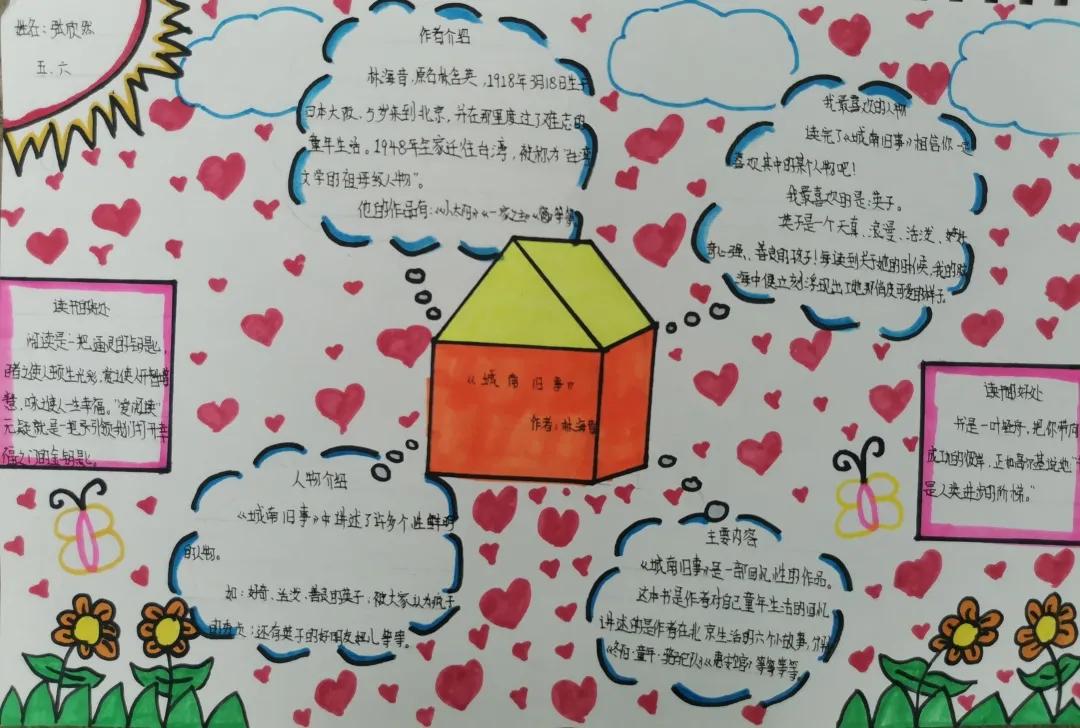 姓名：张欣然
五、六
作者介绍
林海音，原名林含英，1918年3月18日生于
日本大阪，5岁来到北京，并在那里度过了难忘的
童年生活。1948年全家迁住台湾，被称为“台湾
文学的祖母级人物”。
他的作品有：《小太阳》《一家之主》
我最喜欢的人物
读完了《城南旧事》相信你一定
喜欢其中的某个人物吧！
我最喜欢的是：英子。
英子是一个天真、浪漫、活泼、好
奇心强、善良的孩子！每读到关于她的时候，我的脑
海中便立刻浮现出了她那俏皮可爱的样子。
读书的好处
阅读是一把通灵的钥匙，
元疑就是一把引领我们打开幸
福之门的金钥匙。
《城南旧事》
作者：林海音
读书的好处
书是一叶轻舟，把你带向
成功的彼岸，正如高尔基说她“书
是人类进步的阶梯。”
人物介绍
《城南旧事》中讲述了许多个性鲜明
的人物。
如：好奇、活泼、善良的英子；被大家认为疯子
的秀贞；还有英子的好朋友妞儿等等。
主要内容
《城南旧事》是一部回忆性的作品。
这本书是作者对自己童年生活的回忆
讲述的是作者在北京生活的六个小故事，分别
《冬阳·童年·骆驼队》《惠安馆》等等等等